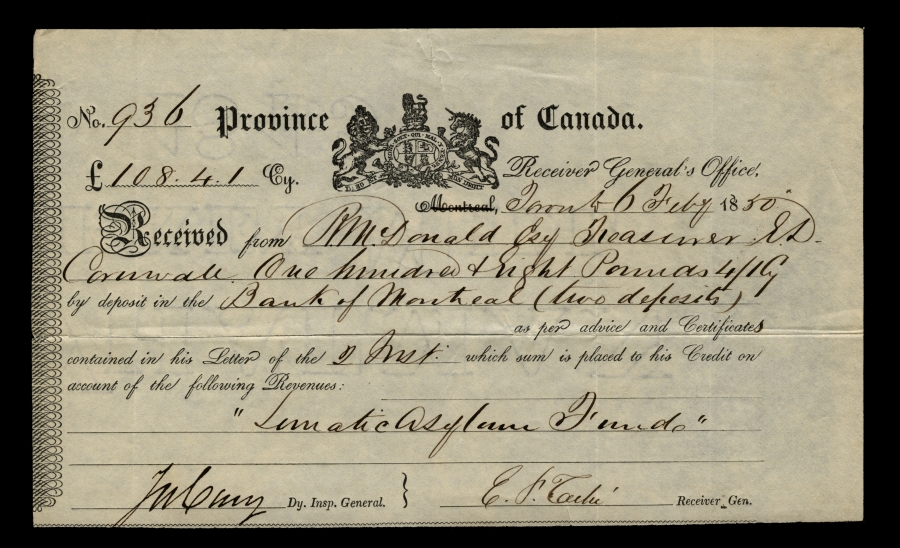 No. 936 Province of Canada.
£108.4.1 Cy. Receiver General's Office,
Montreal, Toronto 6 Feby 1850
Received from R McDonald Esq Treasurer E.D.
Cornwall. One hundred & Eight Pounds 4/1 Cy
by deposit in the Bank of Montreal (two deposits)
as per advice and Certificates
contained in his Letter of the Inst: which sum is placed to his Credit on
account of the following Revenues:
"Lunatic Asylum Funds"
Jos Cary Dy. Insp. General. } E. P. Taché Receiver Gen.